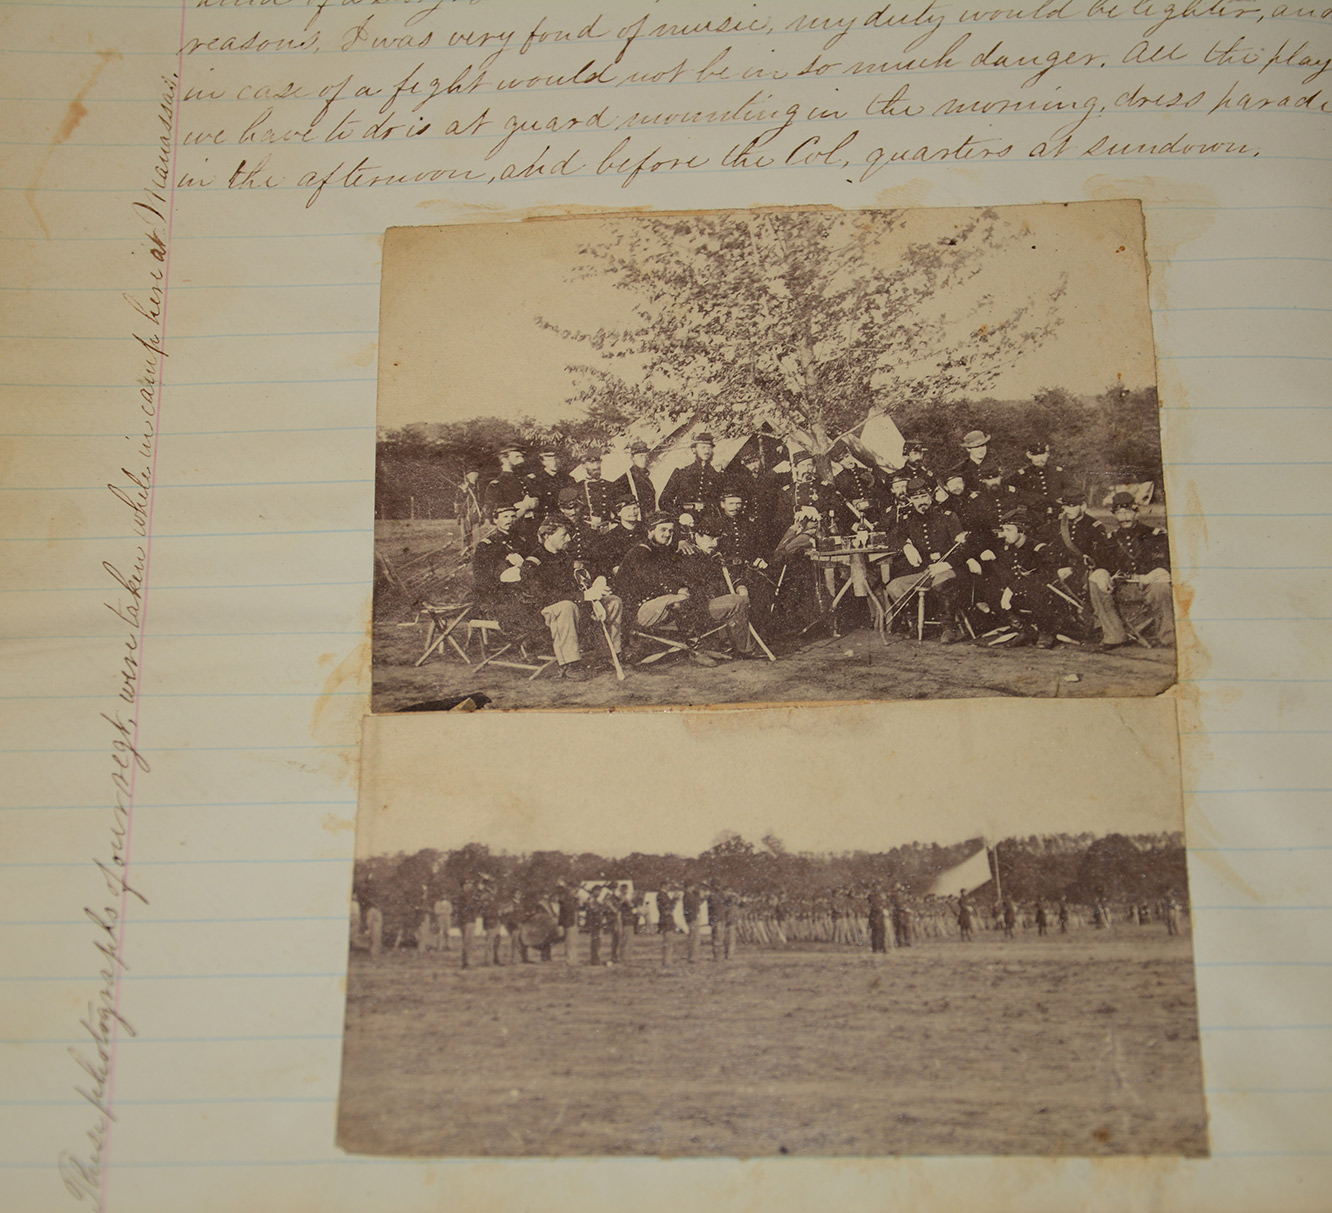 reasons, I was very fond of music, my duty would be lighter, and
in case of a fight would not be in so much danger. All the play
we have to do is at guard mounting in the morning, dress parade
in the afternoon, and before the Col, quarters at sundown.
These photographs of our regt, were taken while in camp here at Manassas.